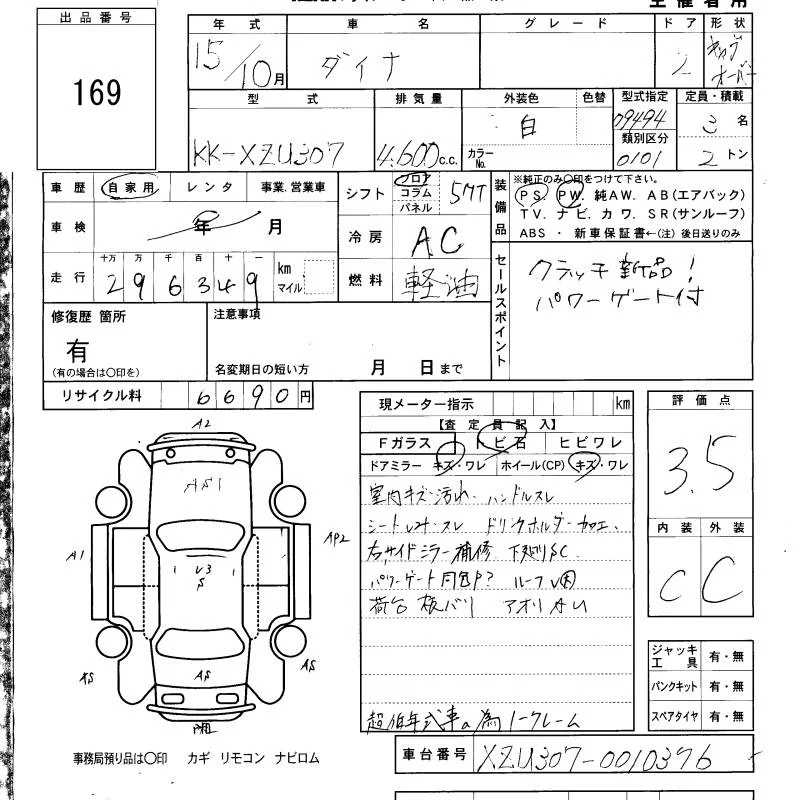 出品番号
169
年式 車名 グレード ドア 形状
15/10月 ダイナ 2 キャブオーバー
型式 排気量 外装色 色替 型式指定 定員・積載
KK-XZU307 4,600c.c. 白 カラーNo. 09494 3名
類別区分
0101 2トン
車歴 自家用 レンタ 事業.営業車
シフト フロア コラム パネル 5MT
車検 年 月
冷房 AC
走行 十万 万 千 百 十 一
296349 km マイル
燃料 軽油
装備品
※純正のみ〇印をつけて下さい。
PS. PW. 純AW. AB(エアバック)
TV. ナビ. カワ. SR(サンルーフ)
ABS ・ 新車保証書←(注) 後日送りのみ
セールスポイント
クラッチ新品!
パワーゲート付
修復歴 箇所
有
(有の場合は〇印を)
注意事項
名変期日の短い方 月 日まで
リサイクル料 6690円
現メーター指示 km
【査定員記入】
Fガラス トビ石 ヒビワレ
ドアミラー キズ・ワレ ホイール(CP) キズ・ワレ
室内キズ・汚れ・ハンドルスレ
シート スレ ドリンクホルダー
右サイドミラー補修 下廻りSC
パワーゲート ルーフ
荷台 板バリ アオリ
超低年式車の為ノークレーム
評価点
3.5
内装 外装
C C
ジャッキ 工具 有・無
パンクキット 有・無
スペアタイヤ 有・無
A2
A51
A1
AP2
V3
S
AS
AS
AS
事務局預り品は〇印 カギ リモコン ナビロム
車台番号 XZU307-0010376